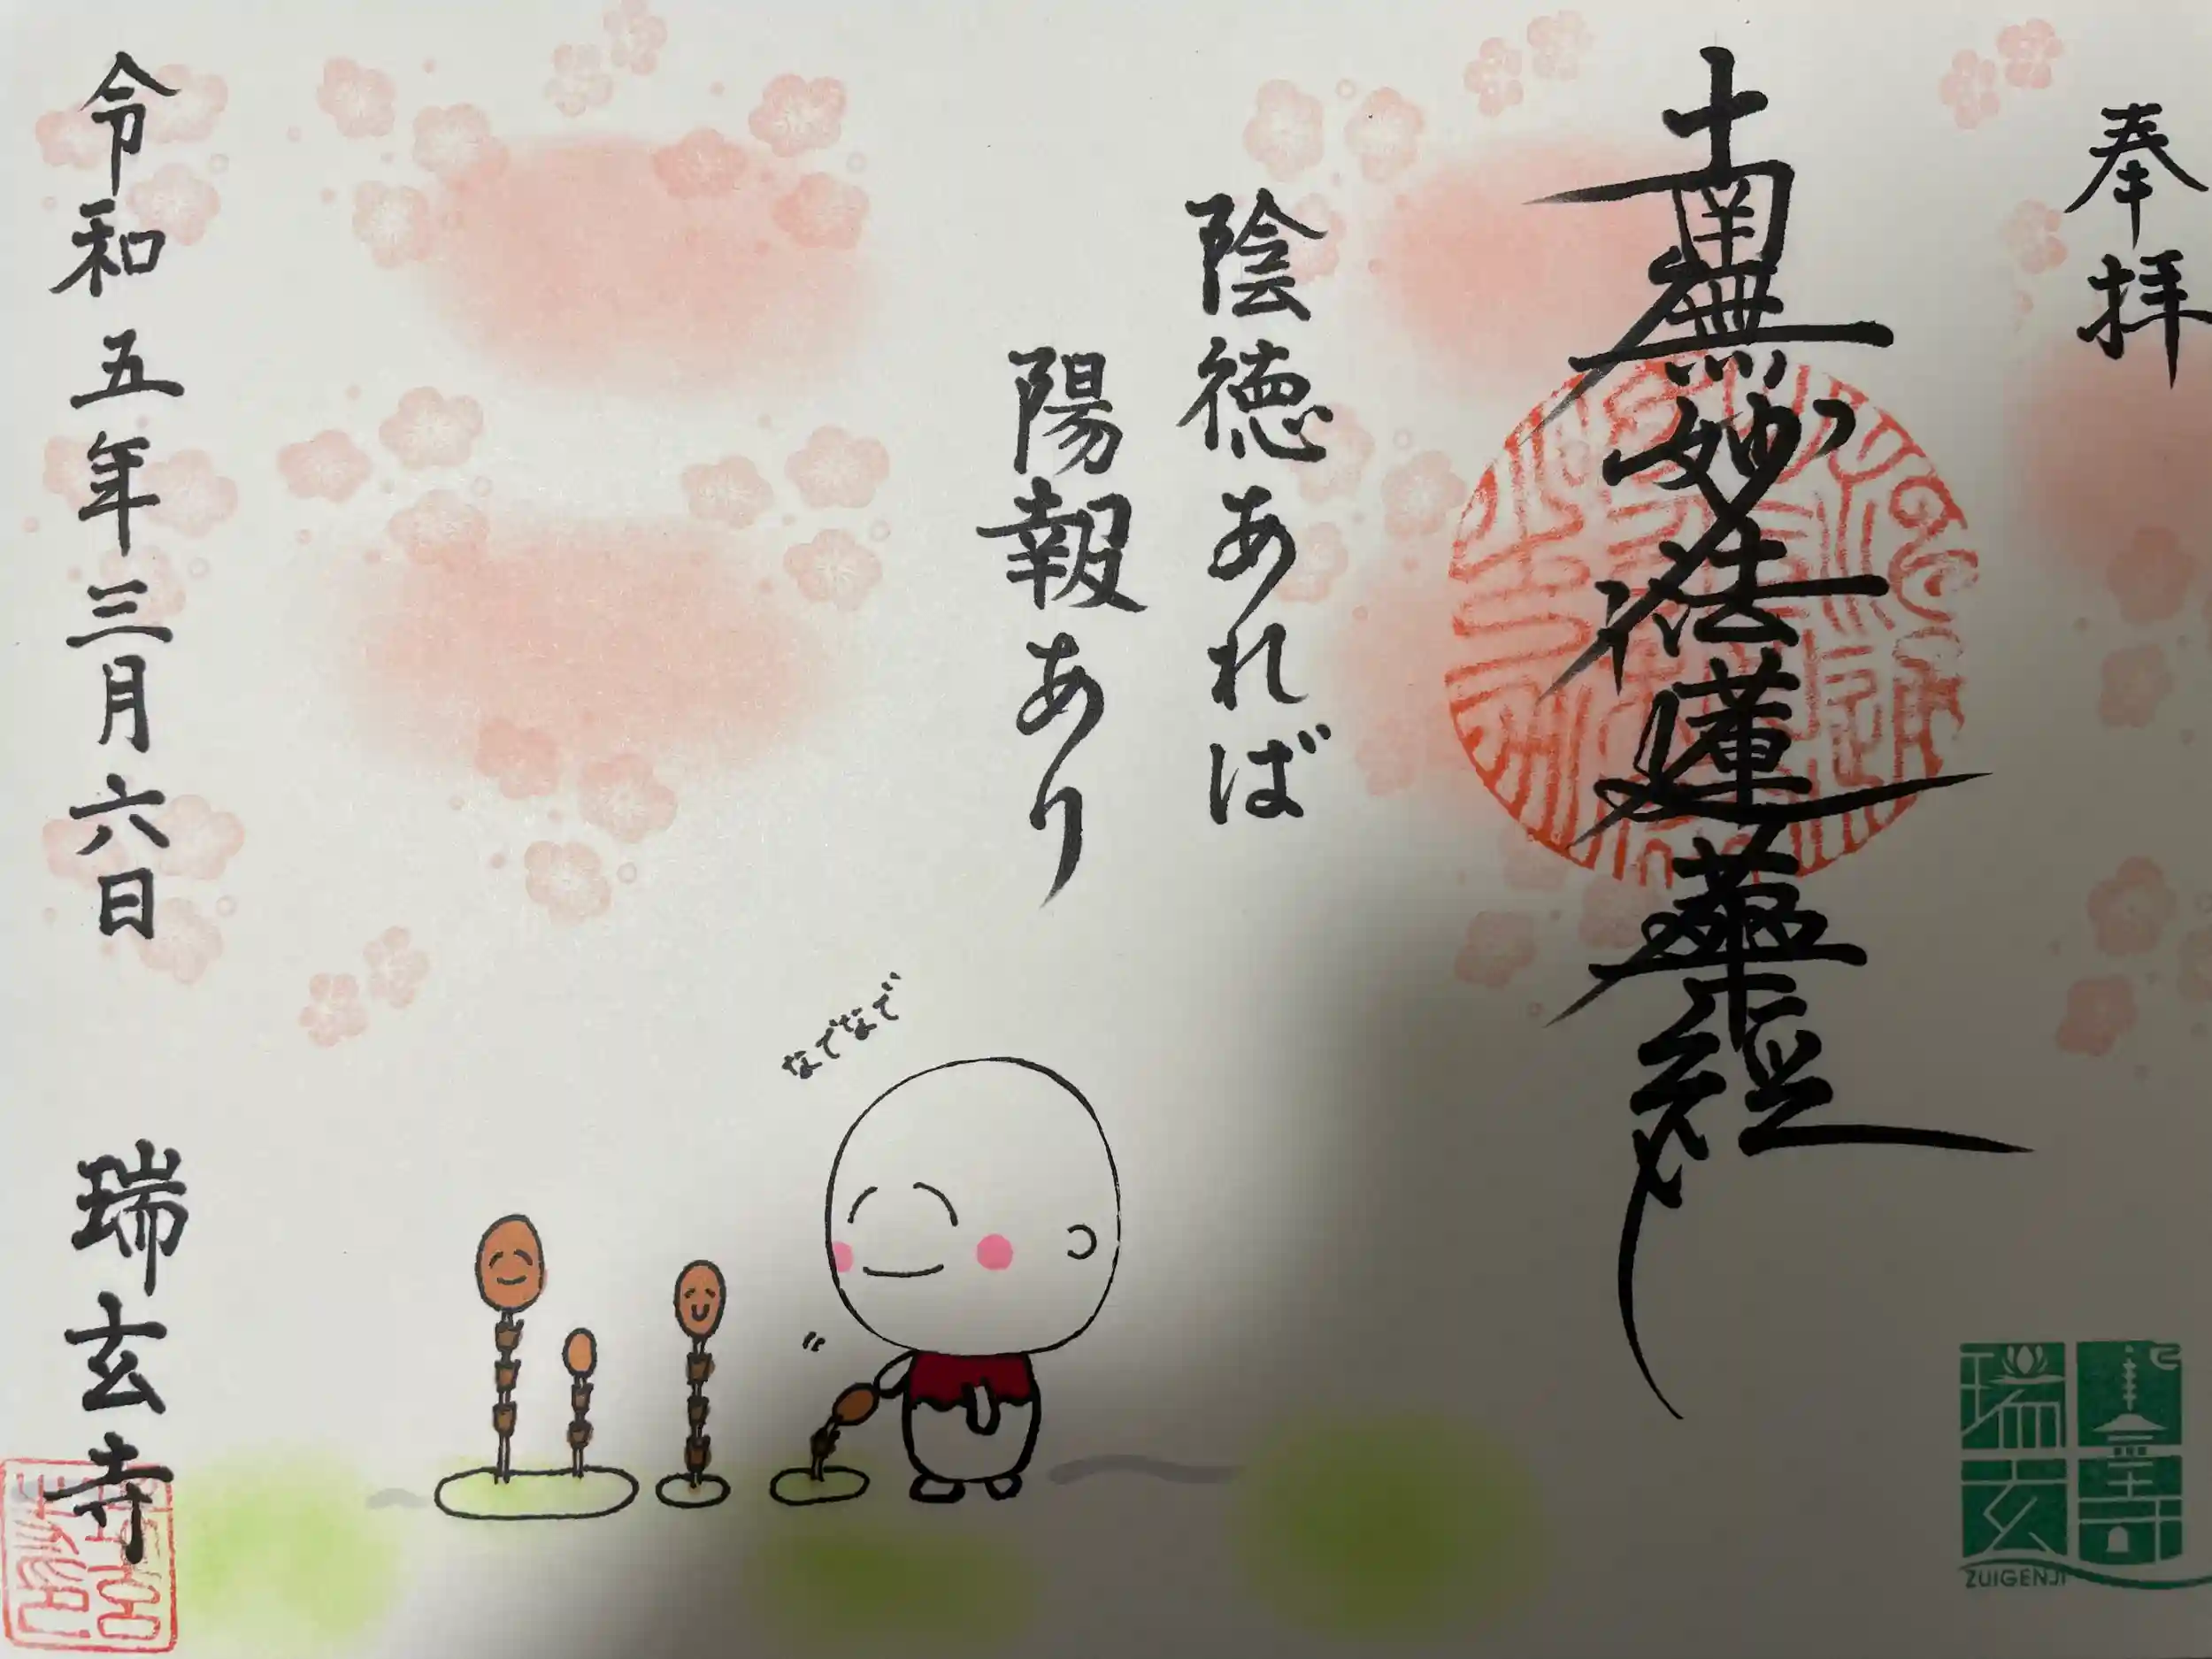 奉拝
南無妙法蓮華経
陰徳あれば
陽報あり
なでなで
令和五年三月六日 瑞玄寺
瑞玄寺
ZUIGENJI